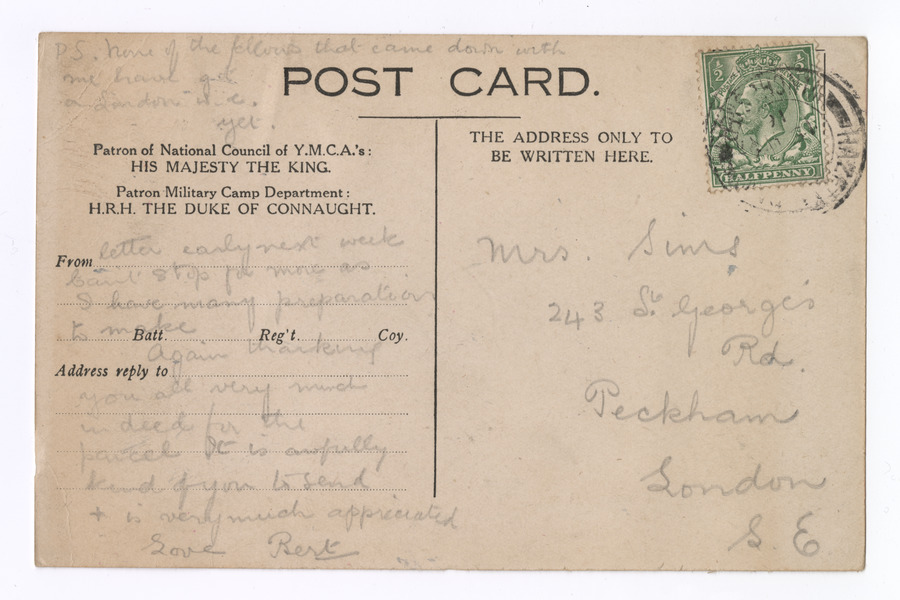 P.S. None of the fellows that came down with
me have got
a London W.E.
yet.
POST CARD.
Patron of National Council of Y.M.C.A.'s:
HIS MAJESTY THE KING.
Patron Military Camp Department:
H.R.H. THE DUKE OF CONNAUGHT.
From letter early next week
Can't stop for more as
I have many preparations
to make
Batt. Reg't. Coy.
Again thanking
Address reply to
you all very much
indeed for the
parcel It is awfully
kind of you to send
+ is very much appreciated
Love Bert
THE ADDRESS ONLY TO
BE WRITTEN HERE.
½ ½
HALFPENNY
Mrs. Sims
243 St George's
Rd.
Peckham
London
S E